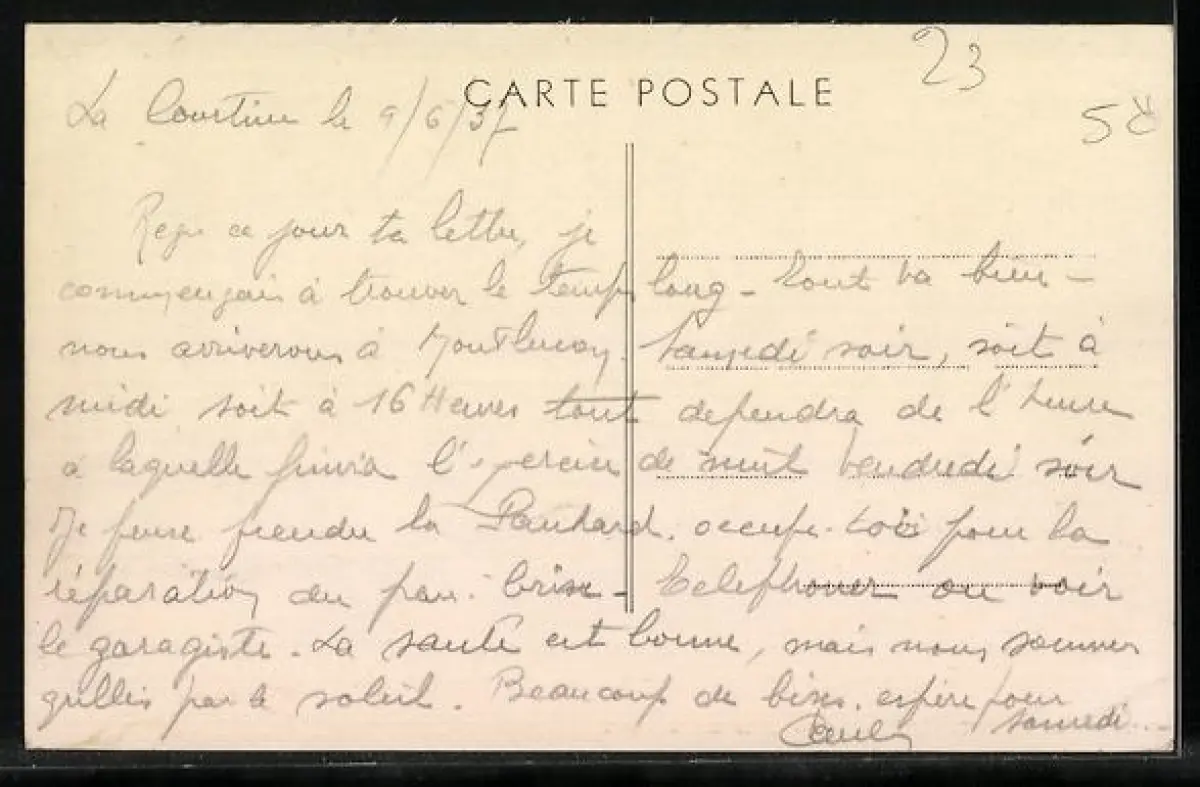 23
CARTE POSTALE
La Courtine le 9/6/37
5
Reçu ce jour ta lettre, je
commençais à trouver le temps long - tout va bien -
nous arriverons à Montluçon. Samedi soir, soit à
midi soit à 16 Heures tout dependra de l'heure
à laquelle finira l'exercice de nuit Vendredi soir
Je pense prendre la Panhard. occupe-toi pour la
réparation du pare-brise - telephoner ou voir
le garagiste. La santé est bonne, mais nous sommes
grillés par le soleil. Beaucoup de bises. espère pour
samedi...